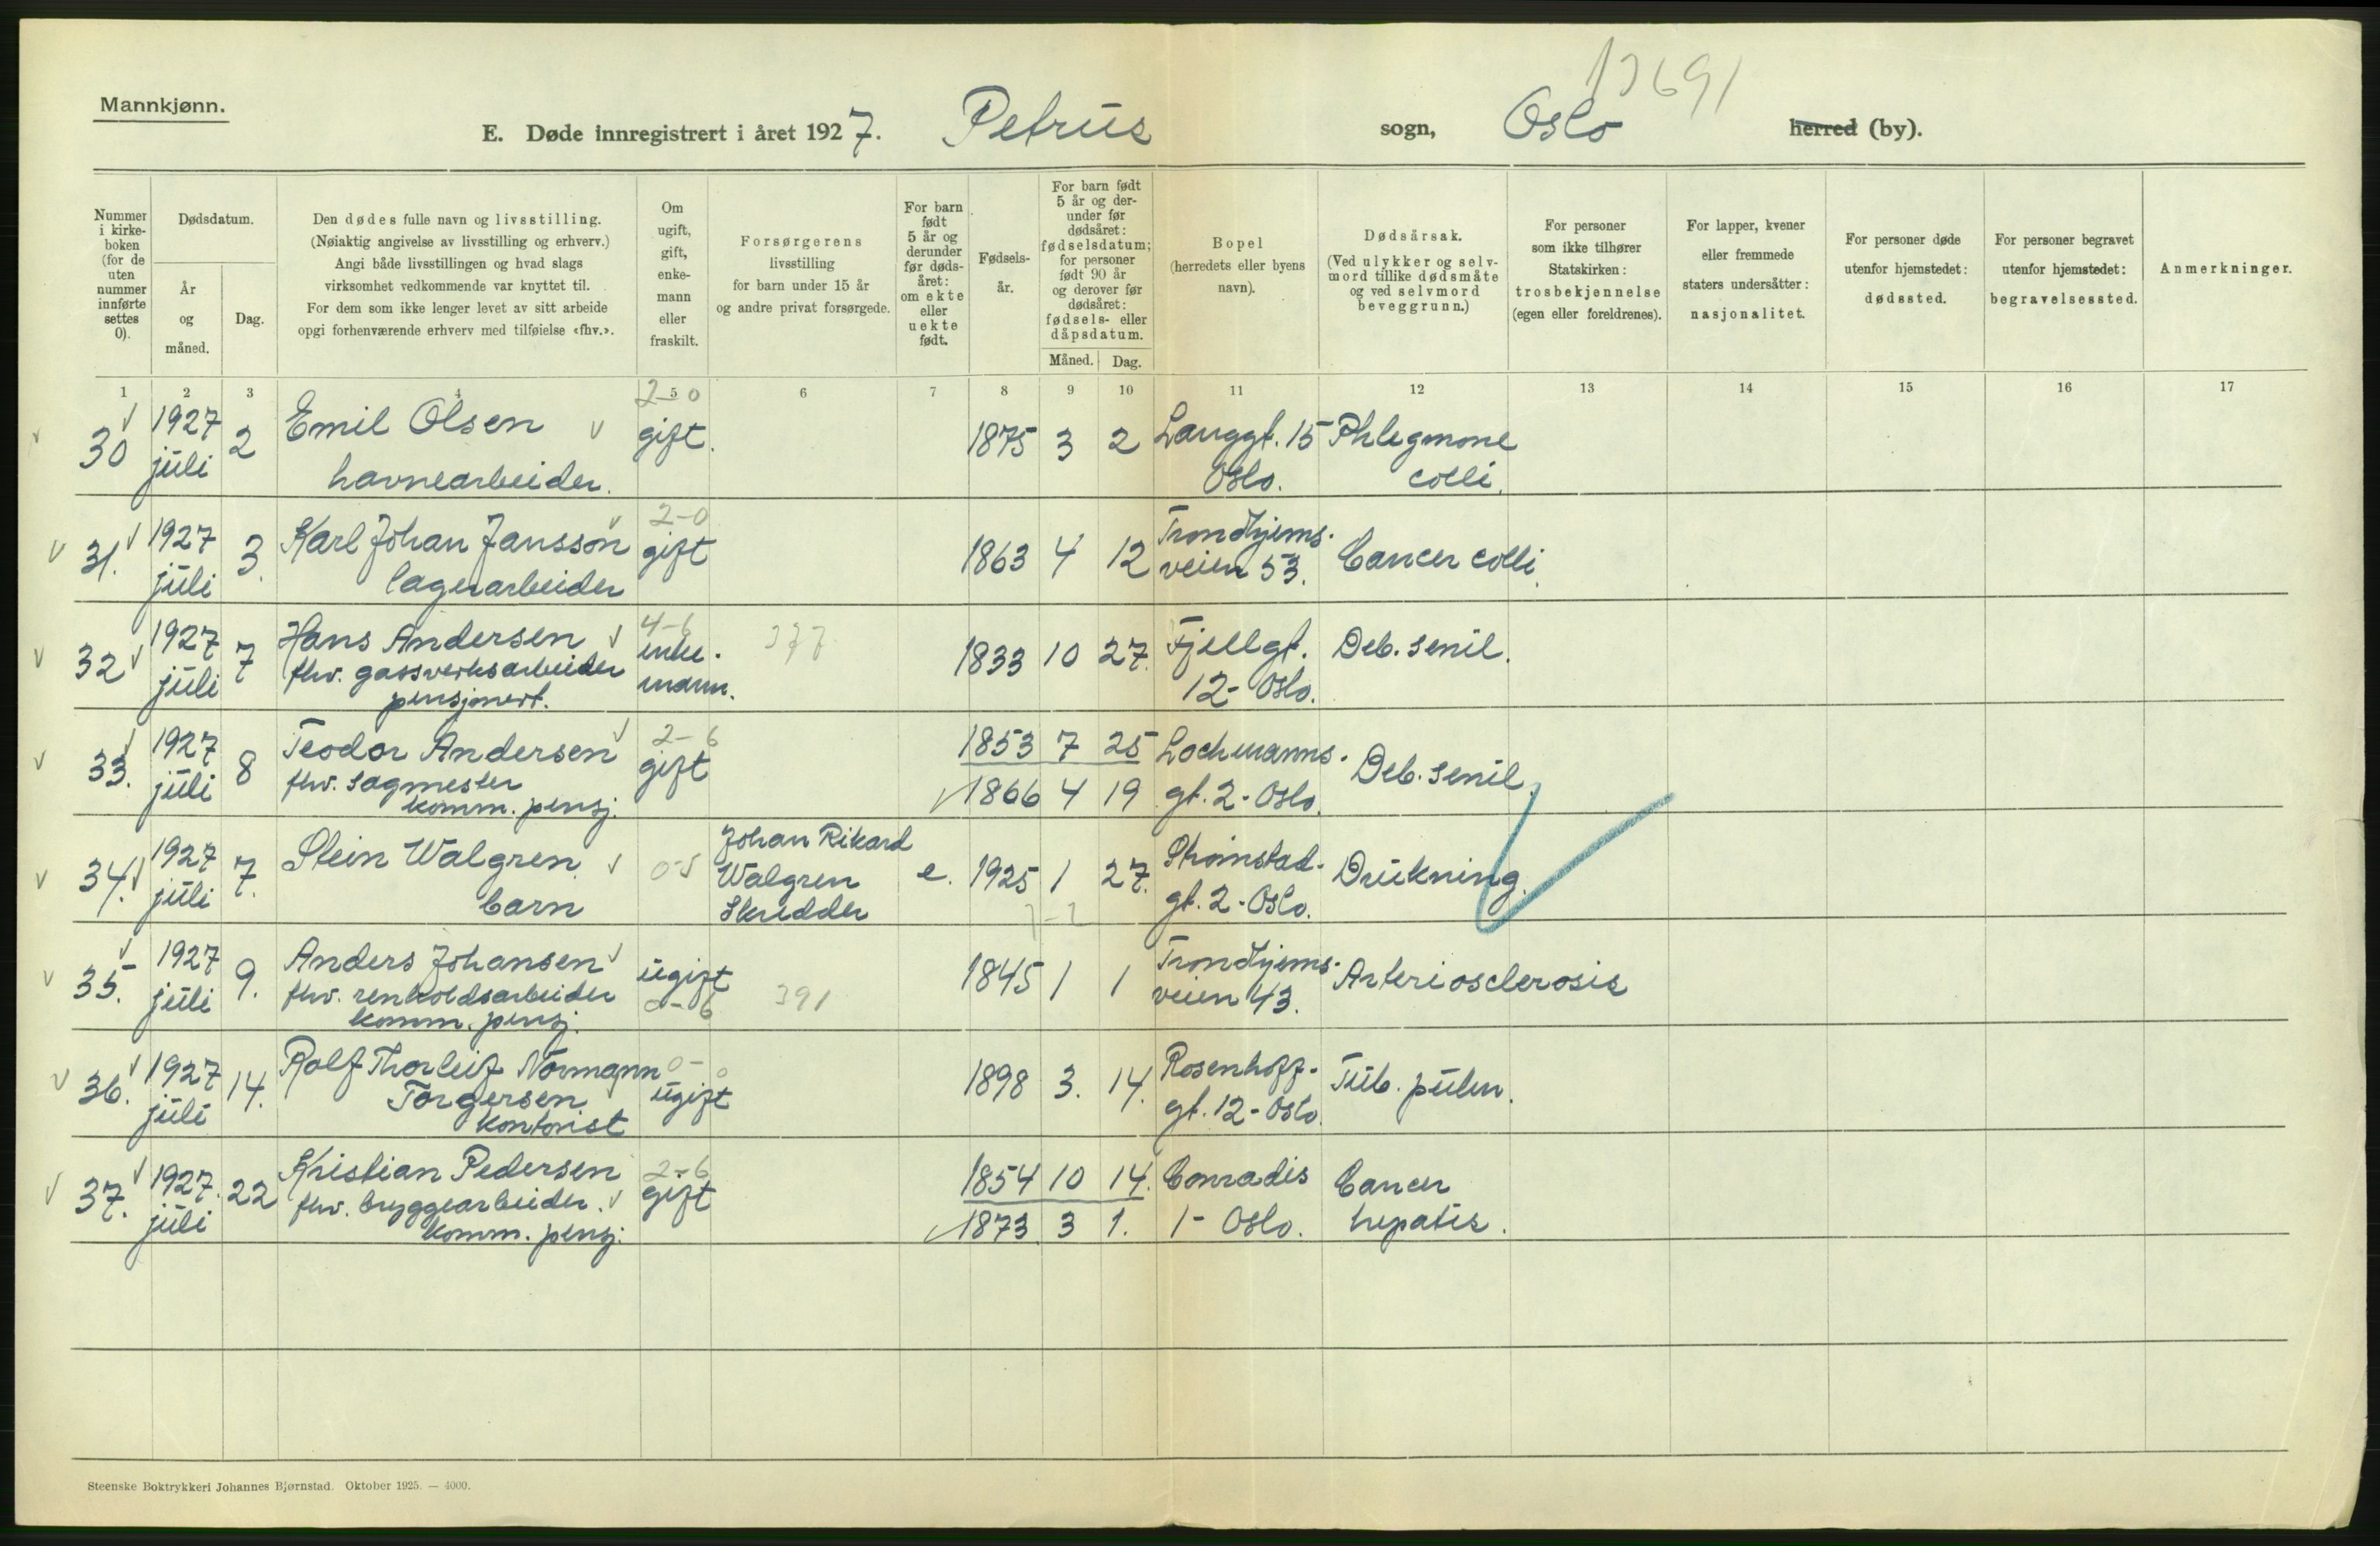 13691
Mannkjønn.
E. Døde innregistrert i året 1927. Petrus sogn, Oslo herred (by).
Nummer i kirkeboken (for de uten nummer innførte settes 0).
Dødsdatum.
År og måned.
Dag.
Den dødes fulle navn og livsstilling.
(Nøiaktig angivelse av livsstilling og erhverv.)
Angi både livsstillingen og hvad slags
virksomhet vedkommende var knyttet til.
For dem som ikke lenger levet av sitt arbeide
opgi forhenværende erhverv med tilføielse «fhv.».
Om ugift, gift, enkemann eller fraskilt.
Forsørgerens
livsstilling
for barn under 15 år
og andre privat forsørgede.
For barn født 5 år og derunder før dødsåret: om ekte eller uekte født.
Fødselsår.
For barn født 5 år og derunder før dødsåret: fødselsdatum; for personer født 90 år og derover før dødsåret: fødsels- eller dåpsdatum.
Måned. Dag.
Bopel
(herredets eller byens
navn).
Dødsårsak.
(Ved ulykker og selvmord tillike dødsmåte
og ved selvmord
beveggrunn.)
For personer
som ikke tilhører
Statskirken:
trosbekjennelse
(egen eller foreldrenes).
For lapper, kvener
eller fremmede
staters undersåtter:
nasjonalitet.
For personer døde
utenfor hjemstedet:
dødssted.
For personer begravet
utenfor hjemstedet:
begravelsessted.
Anmerkninger.
1 2 3 4 5 6 7 8 9 10 11 12 13 14 15 16 17
2-0
30 1927 2 Emil Olsen gift. 1875 3 2 Langgt. 15 Phlegmone
juli havnearbeider. Oslo. colli.
2-0
31. 1927 3. Karl Johan Jansson gift 1863 4 12 Trondhjems-
juli lagerarbeider veien 53. Cancer colli.
4-6
32 1927 7 Hans Andersen enke- 377 1833 10 27. Fjellgt. Deb. senil.
juli fhv. gassverksarbeider mann. 12- Oslo.
pensjonert.
2-6
33. 1927 8 Teodor Andersen gift 1853 7 25 Lochmanns-
juli fhv. sagmester 1866 4 19 gt. 2- Oslo. Deb. senil.
komm. pensj.
34. 1927 7. Stein Walgren 0-5 Johan Rikard e. 1925 1 27. Strömstad- Drukning.
juli barn Walgren gt. 2- Oslo.
Skredder
35. 1927 9. Anders Johansen ugift 1845 1 1 Trondhjems- Arteriosclerosis
juli fhv. renholdsarbeider 0-6 391 veien 43.
komm. pensj.
36. 1927 14. Rolf Thorleif Normann 0-0 1898 3. 14. Rosenhoff- Tub. pulm.
juli Torgersen ugift gt. 12- Oslo.
kontorist
2-6
37. 1927. 22 Kristian Pedersen gift 1854 10 14. Conradis Cancer
juli fhv. bryggearbeider. 1873. 3 1. 1- Oslo. hepatis.
komm. pensj.
Steenske Boktrykkeri Johannes Bjørnstad. Oktober 1925. — 4000.